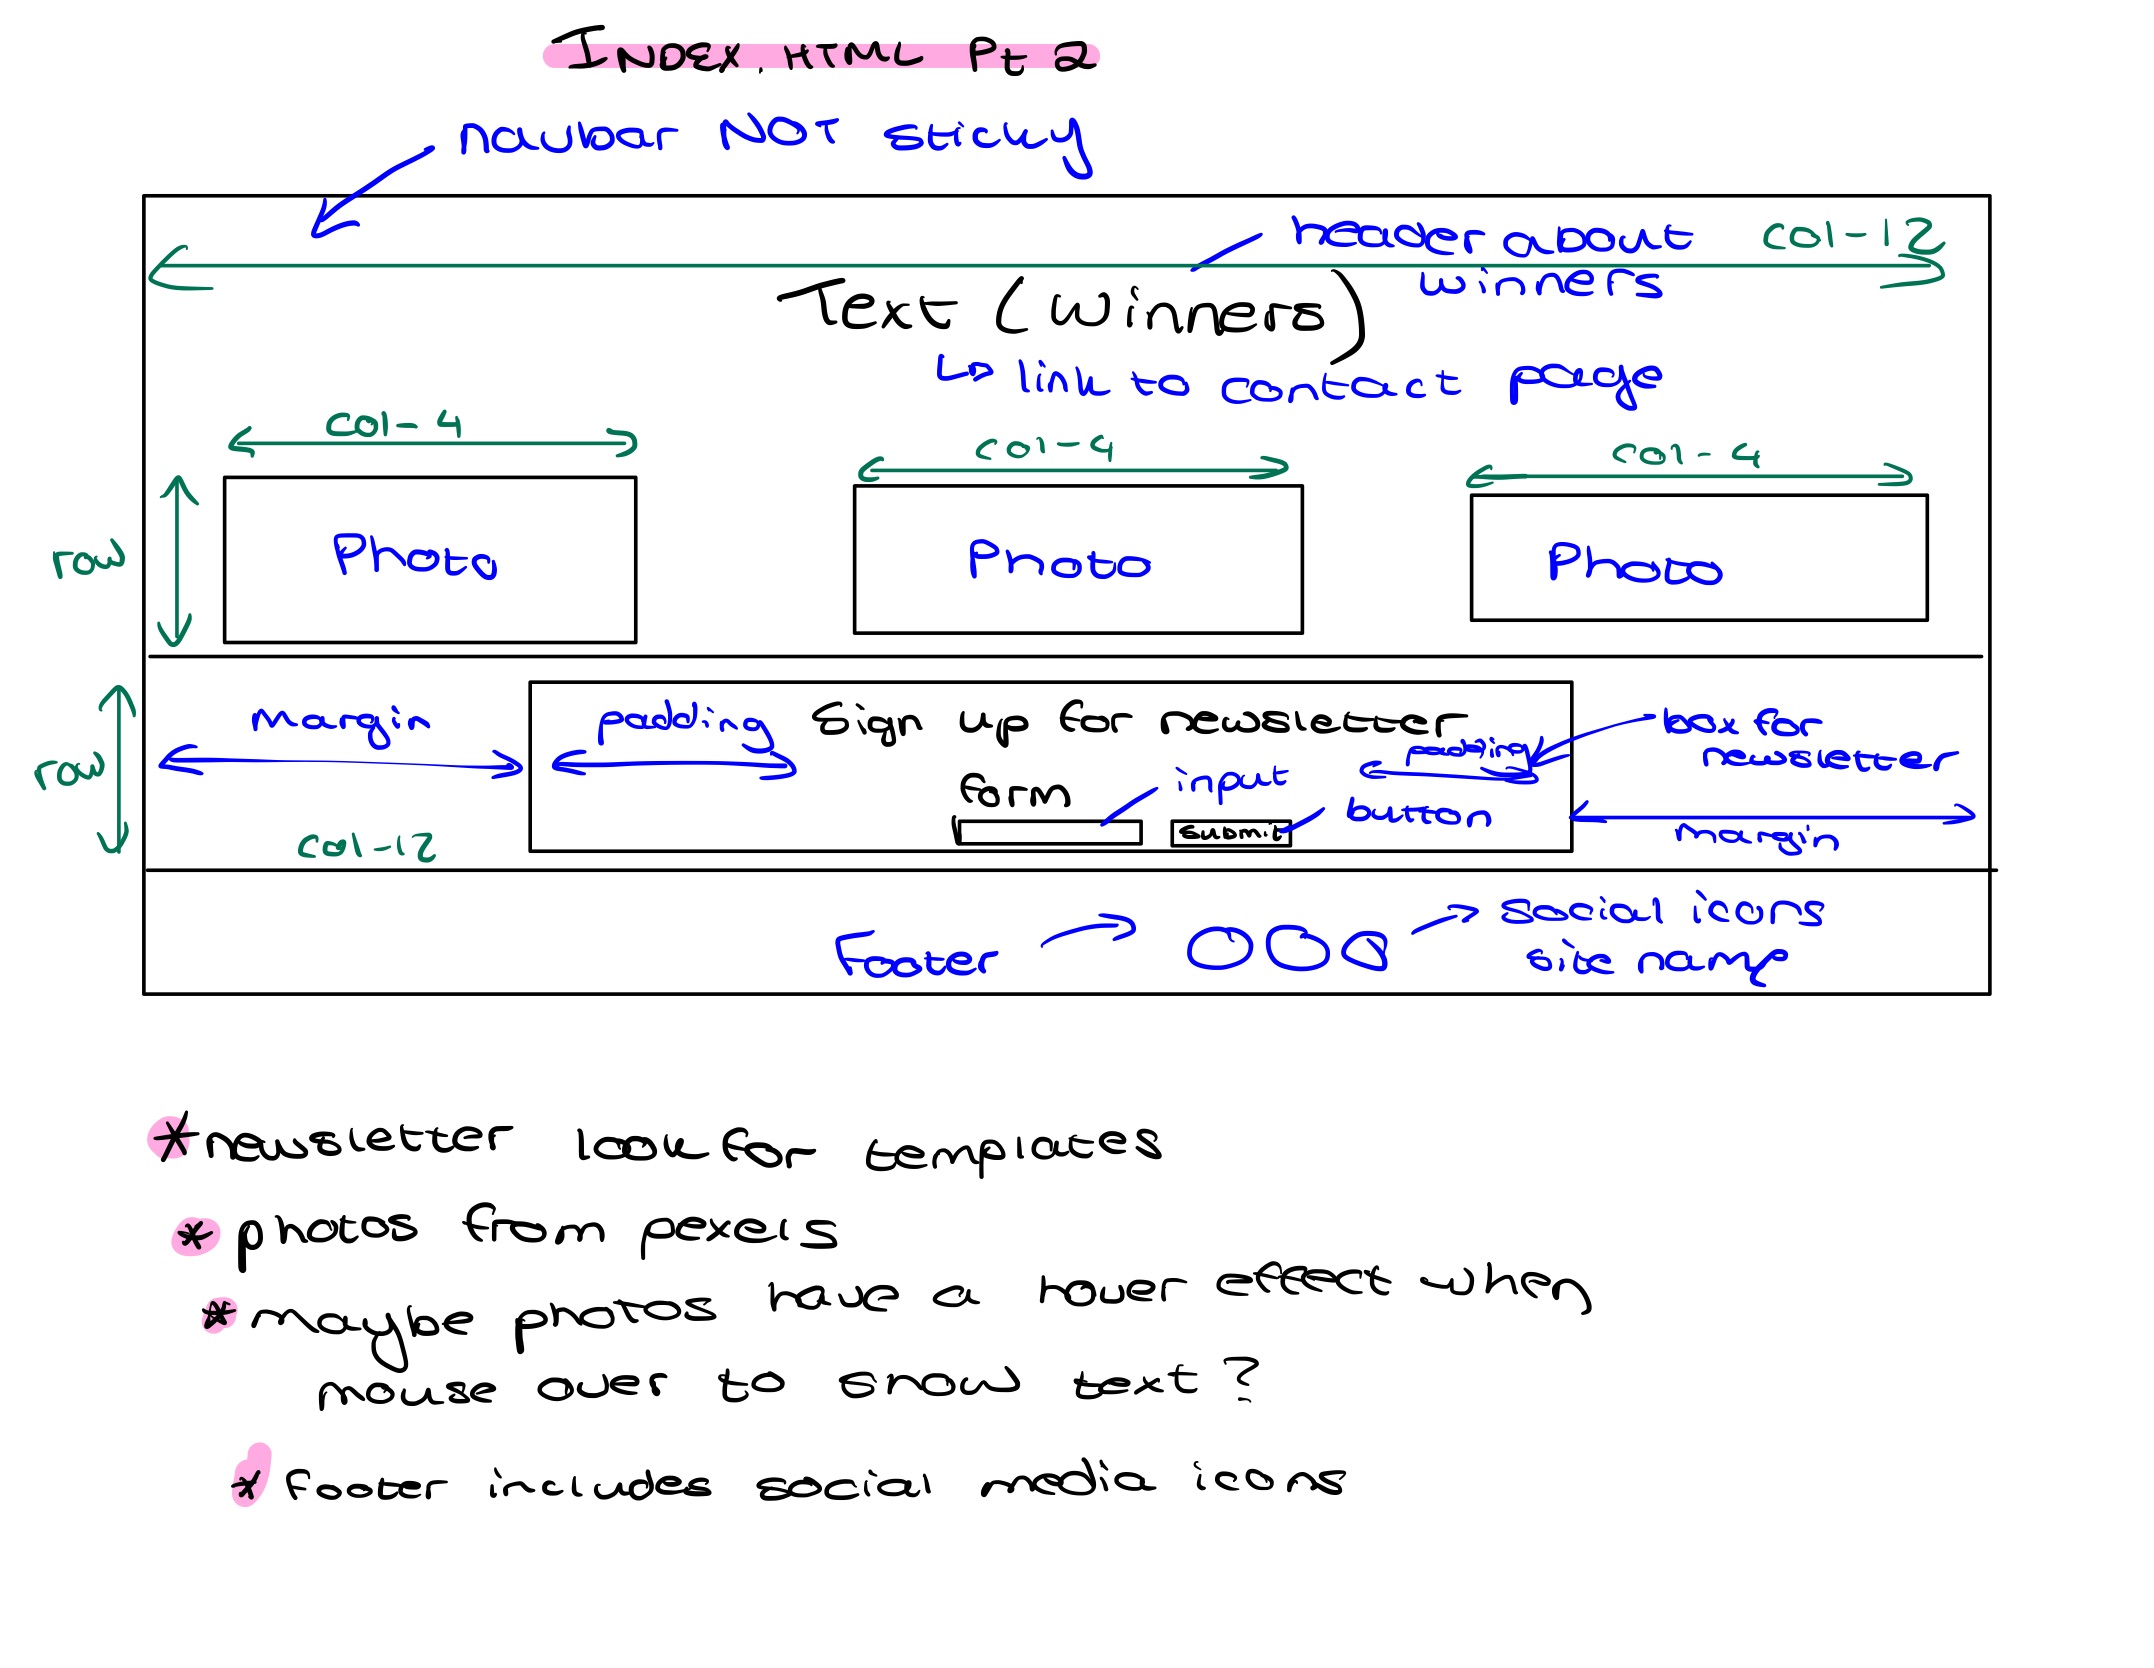 INDEX.HTML Pt 2
navbar NOT sticky
header about winners
col-12
Text (winners)
↳ link to contact page
col-4
col-4
col-4
row
Photo
Photo
Photo
row
margin
padding
Sign up for newsletter
padding
box for newsletter
form
input
submit
button
margin
col-12
Footer
social icons
site name
*newsletter look for templates
* photos from pexels
* maybe photos have a hover effect when
mouse over to show text?
* footer includes social media icons